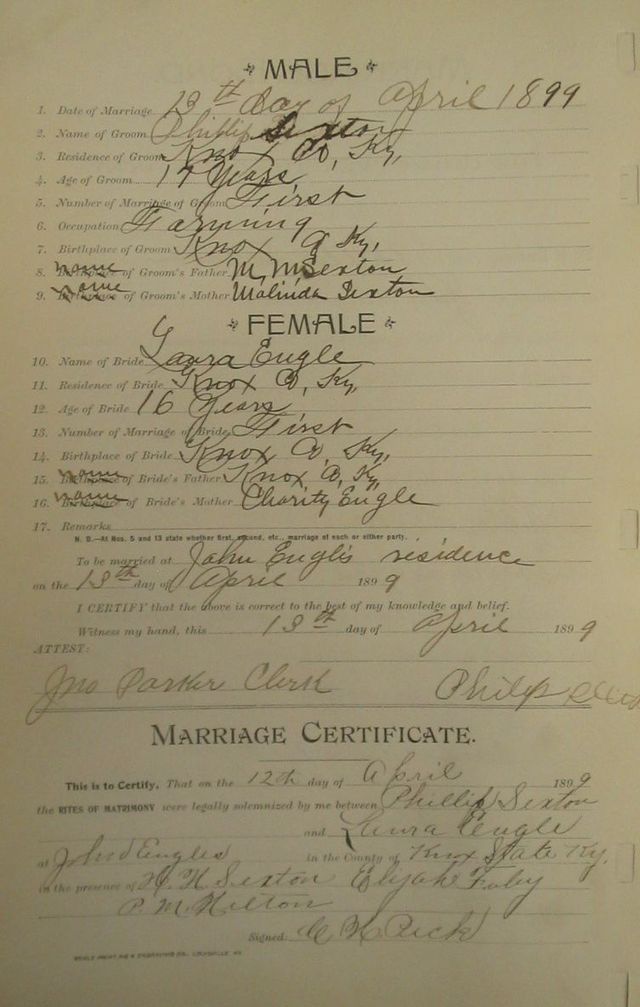 MALE
1. Date of Marriage 13th day of April 1899
2. Name of Groom Phillip Sexton
3. Residence of Groom Knox Co, Ky,
4. Age of Groom 17 Years
5. Number of Marriage of Groom First
6. Occupation Farming
7. Birthplace of Groom Knox Co Ky,
8. name of Groom's Father M. M Sexton
9. name of Groom's Mother Malinda Sexton
FEMALE
10. Name of Bride Laura Eugle
11. Residence of Bride Knox Co, Ky,
12. Age of Bride 16 Years
13. Number of Marriage of Bride First
14. Birthplace of Bride Knox Co, Ky,
15. name of Bride's Father Knox Co, Ky,
16. name of Bride's Mother Charity Eugle
17. Remarks
N. B.—At Nos. 5 and 13 state whether first, second, etc., marriage of each or either party.
To be married at John Eugle's residence
on the 13th day of April 1899
I CERTIFY that the above is correct to the best of my knowledge and belief.
Witness my hand, this 13th day of April 1899
ATTEST:
Jno Parker Clerk Philip
MARRIAGE CERTIFICATE.
This is to Certify, That on the 12th day of April 1899
the RITES OF MATRIMONY were legally solemnized by me between Phillip Sexton
and Laura Eugle
at John Eugles in the County of Knox State Ky.
in the presence of H. H Sexton Elijah
P. M. Hilton
Signed: